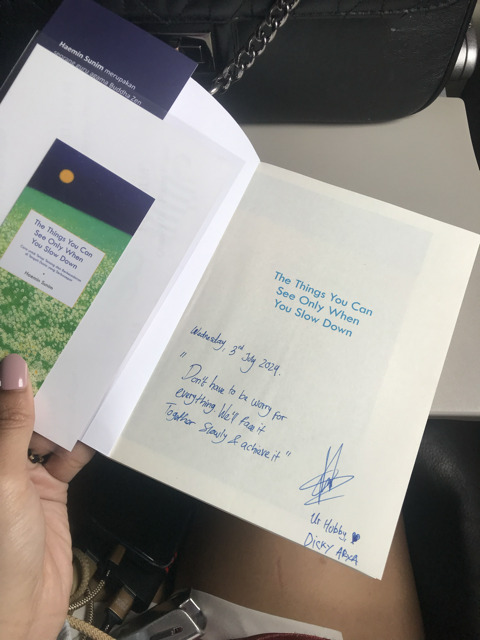 Haemin Sunim merupakan
seorang guru agama Buddha Zen
The Things You Can
See Only When
You Slow Down
Haemin Sunim
The Things You Can
See Only When
You Slow Down
Wednesday, 3rd July 2024.
"Don't have to be worry for
everything We'll face it
Together Slowly & achieve it"
Ur Hubby
Dicky ARXA